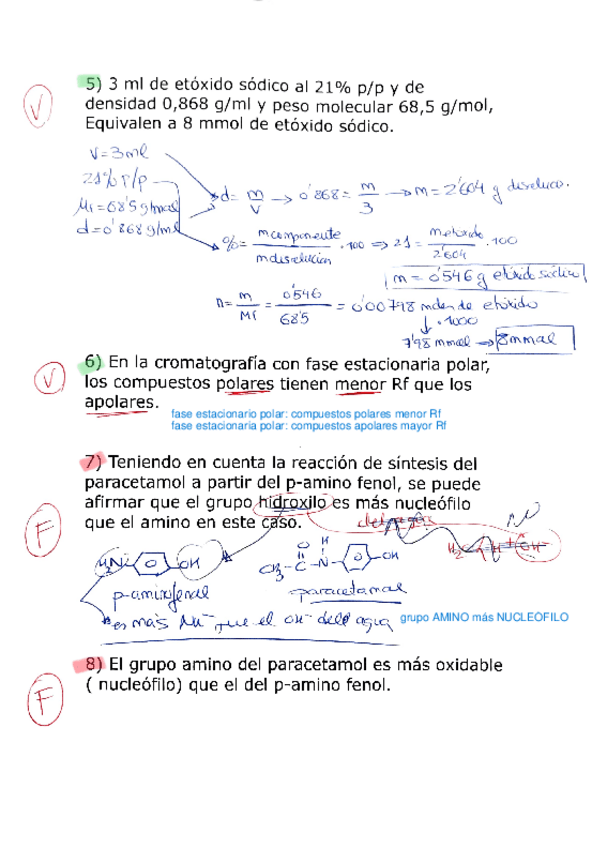 5) 3 ml de etóxido sódico al 21% p/p y de
densidad 0,868 g/ml y peso molecular 68,5 g/mol,
Equivalen a 8 mmol de etóxido sódico.
V
V=3ml
21% P/P
Mr=68'5 g/mol
d=0'868 g/ml
d= m/V → 0'868 = m/3 → m = 2'604 g disoluc.
%= m componente / m disolución · 100 ⇒ 21 = m etóxido / 2'604 · 100
m = 0'546 g etóxido sódico
n= m/Mr = 0'546/68'5 = 0'00798 moles de etóxido
↓ · 1000
7'98 mmol → 8 mmol
V
6) En la cromatografía con fase estacionaria polar,
los compuestos polares tienen menor Rf que los
apolares.
fase estacionario polar: compuestos polares menor Rf
fase estacionaria polar: compuestos apolares mayor Rf
7) Teniendo en cuenta la reacción de síntesis del
paracetamol a partir del p-amino fenol, se puede
afirmar que el grupo hidroxilo es más nucleófilo
que el amino en este caso.
F
H2N OH
CH3-C-N- -OH
O H
p-aminofenol
paracetamol
es más Nu⁻ que el OH⁻ del agua
grupo AMINO más NUCLEÓFILO
8) El grupo amino del paracetamol es más oxidable
( nucleófilo) que el del p-amino fenol.
F